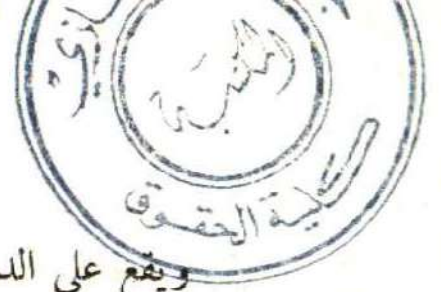 المكتبة
كلية الحقوق
ويقع على الد